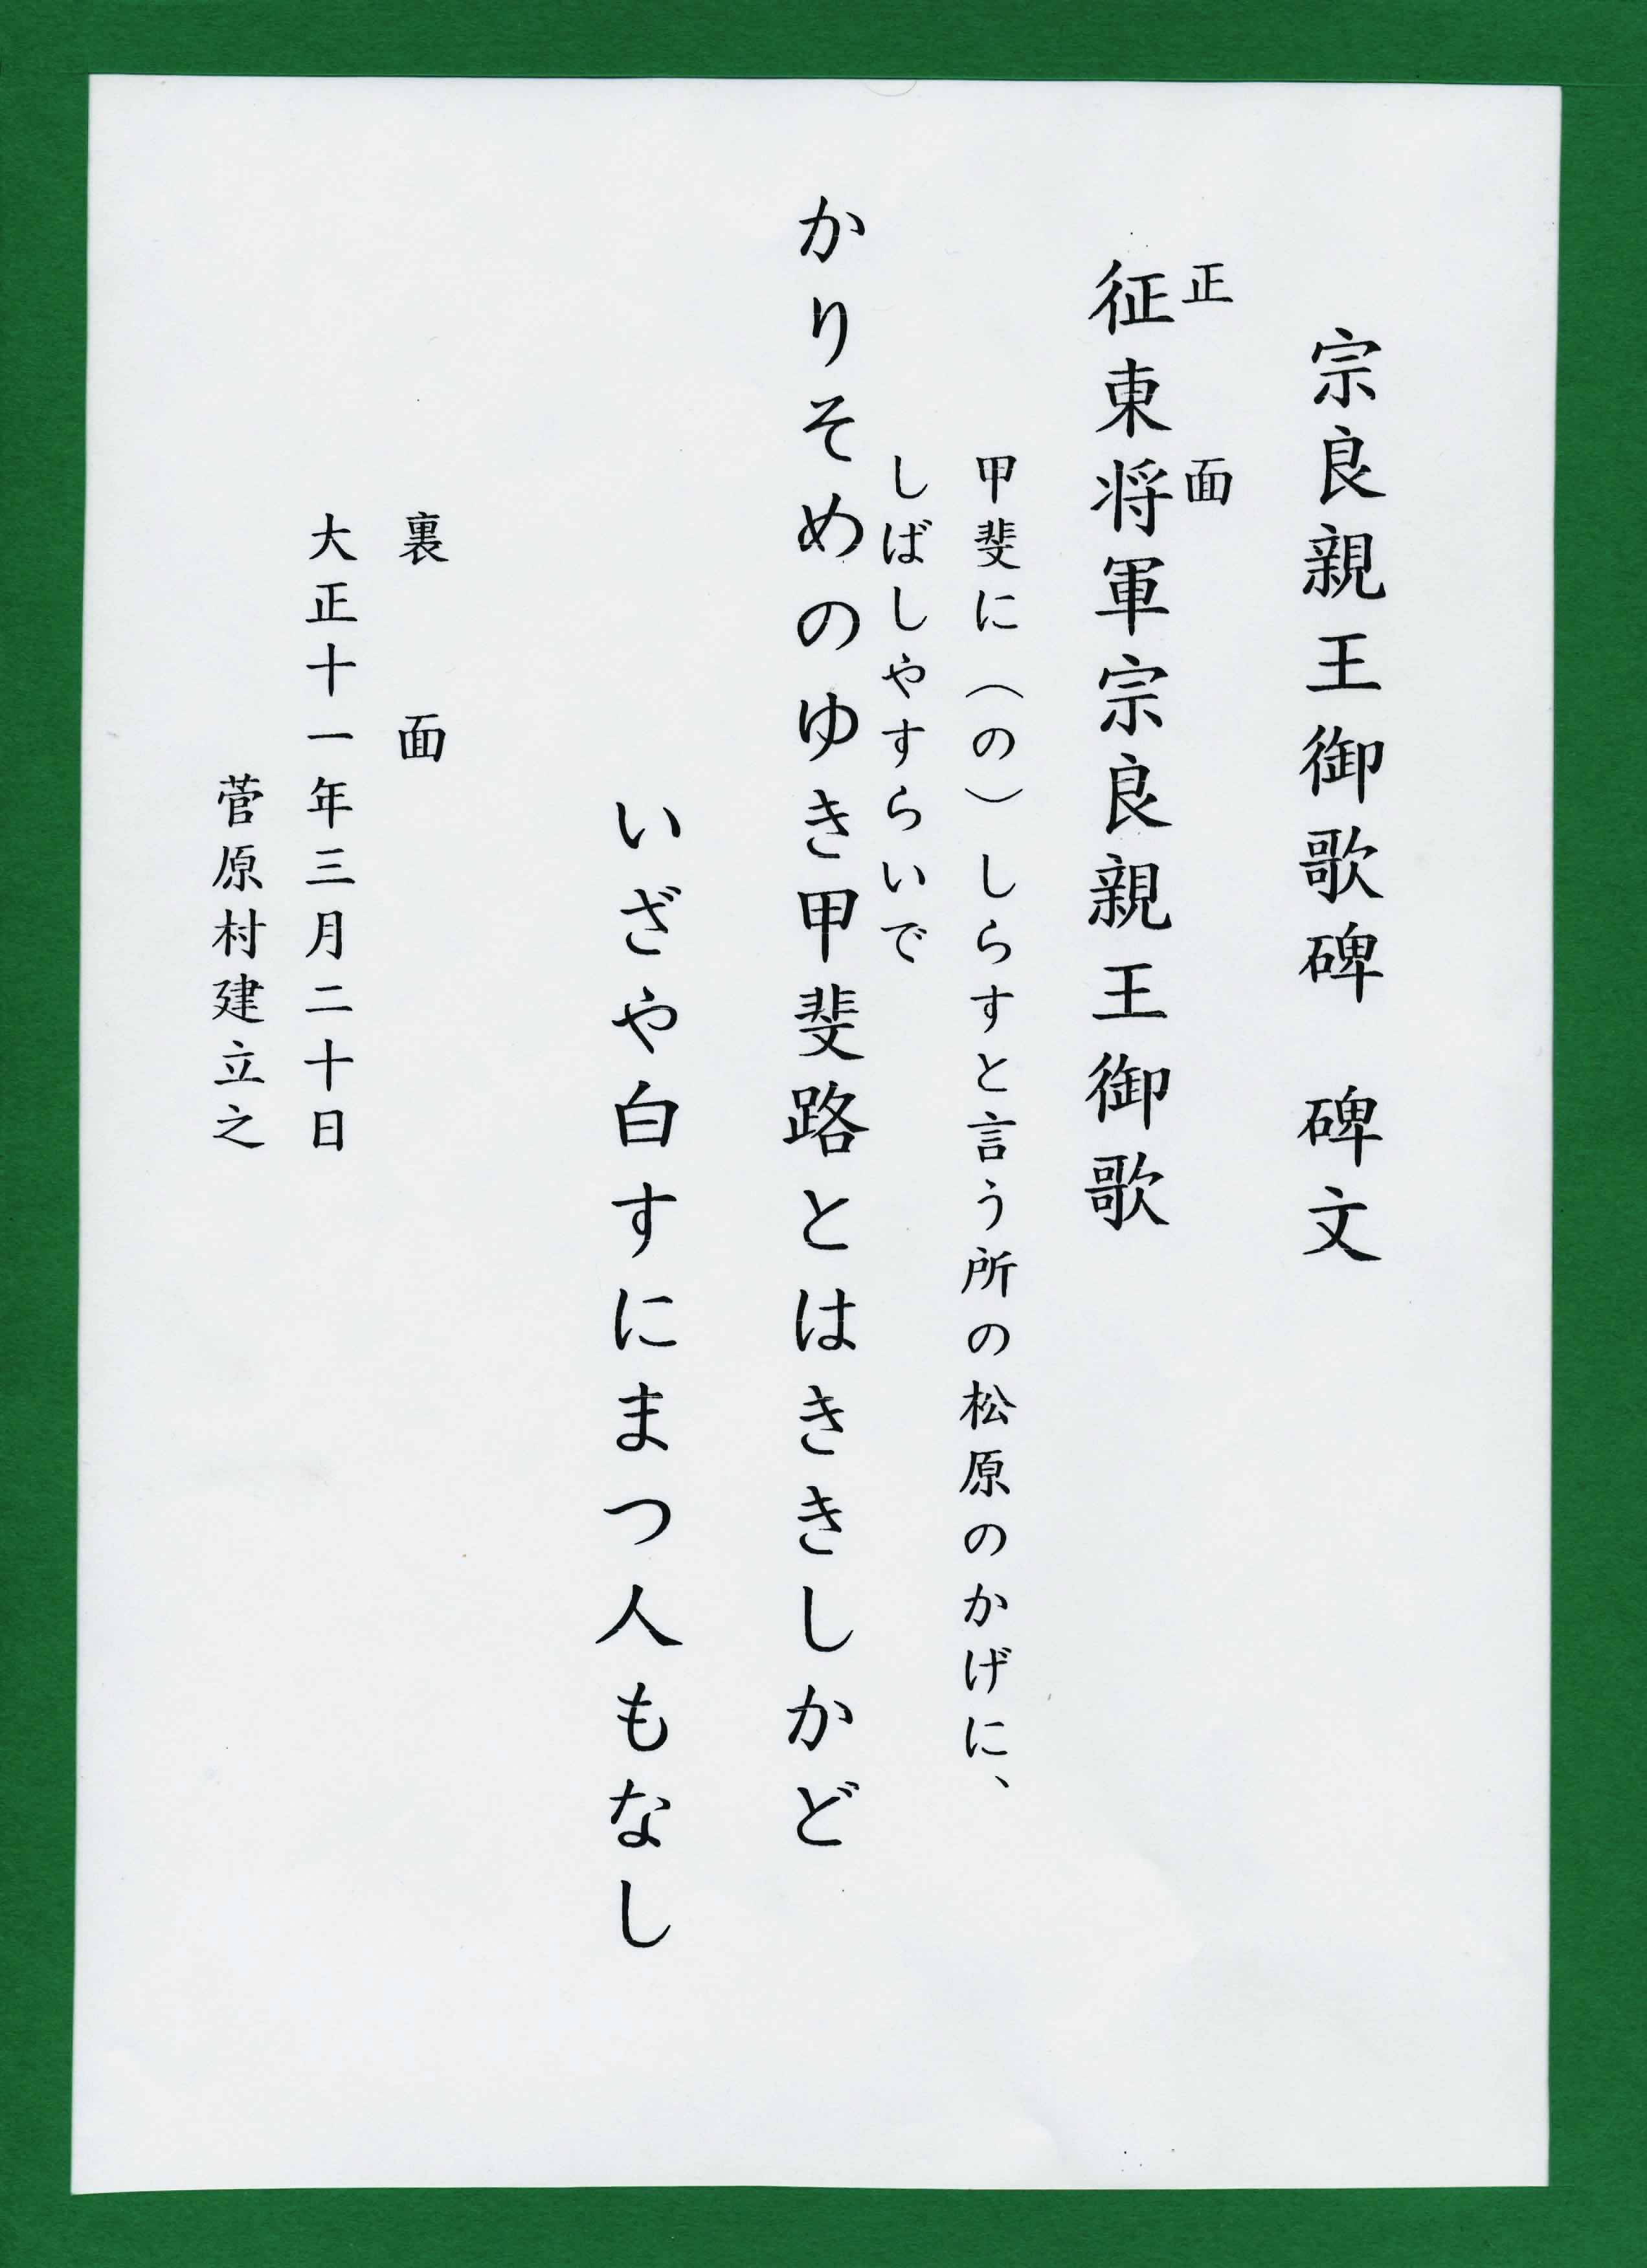 宗良親王御歌碑　碑文
正面
征東将軍宗良親王御歌
甲斐に（の）しらすと言う所の松原のかげに、
しばしやすらいで
かりそめのゆき甲斐路とはききしかど
いざや白すにまつ人もなし
裏面
大正十一年三月二十日
菅原村建立之